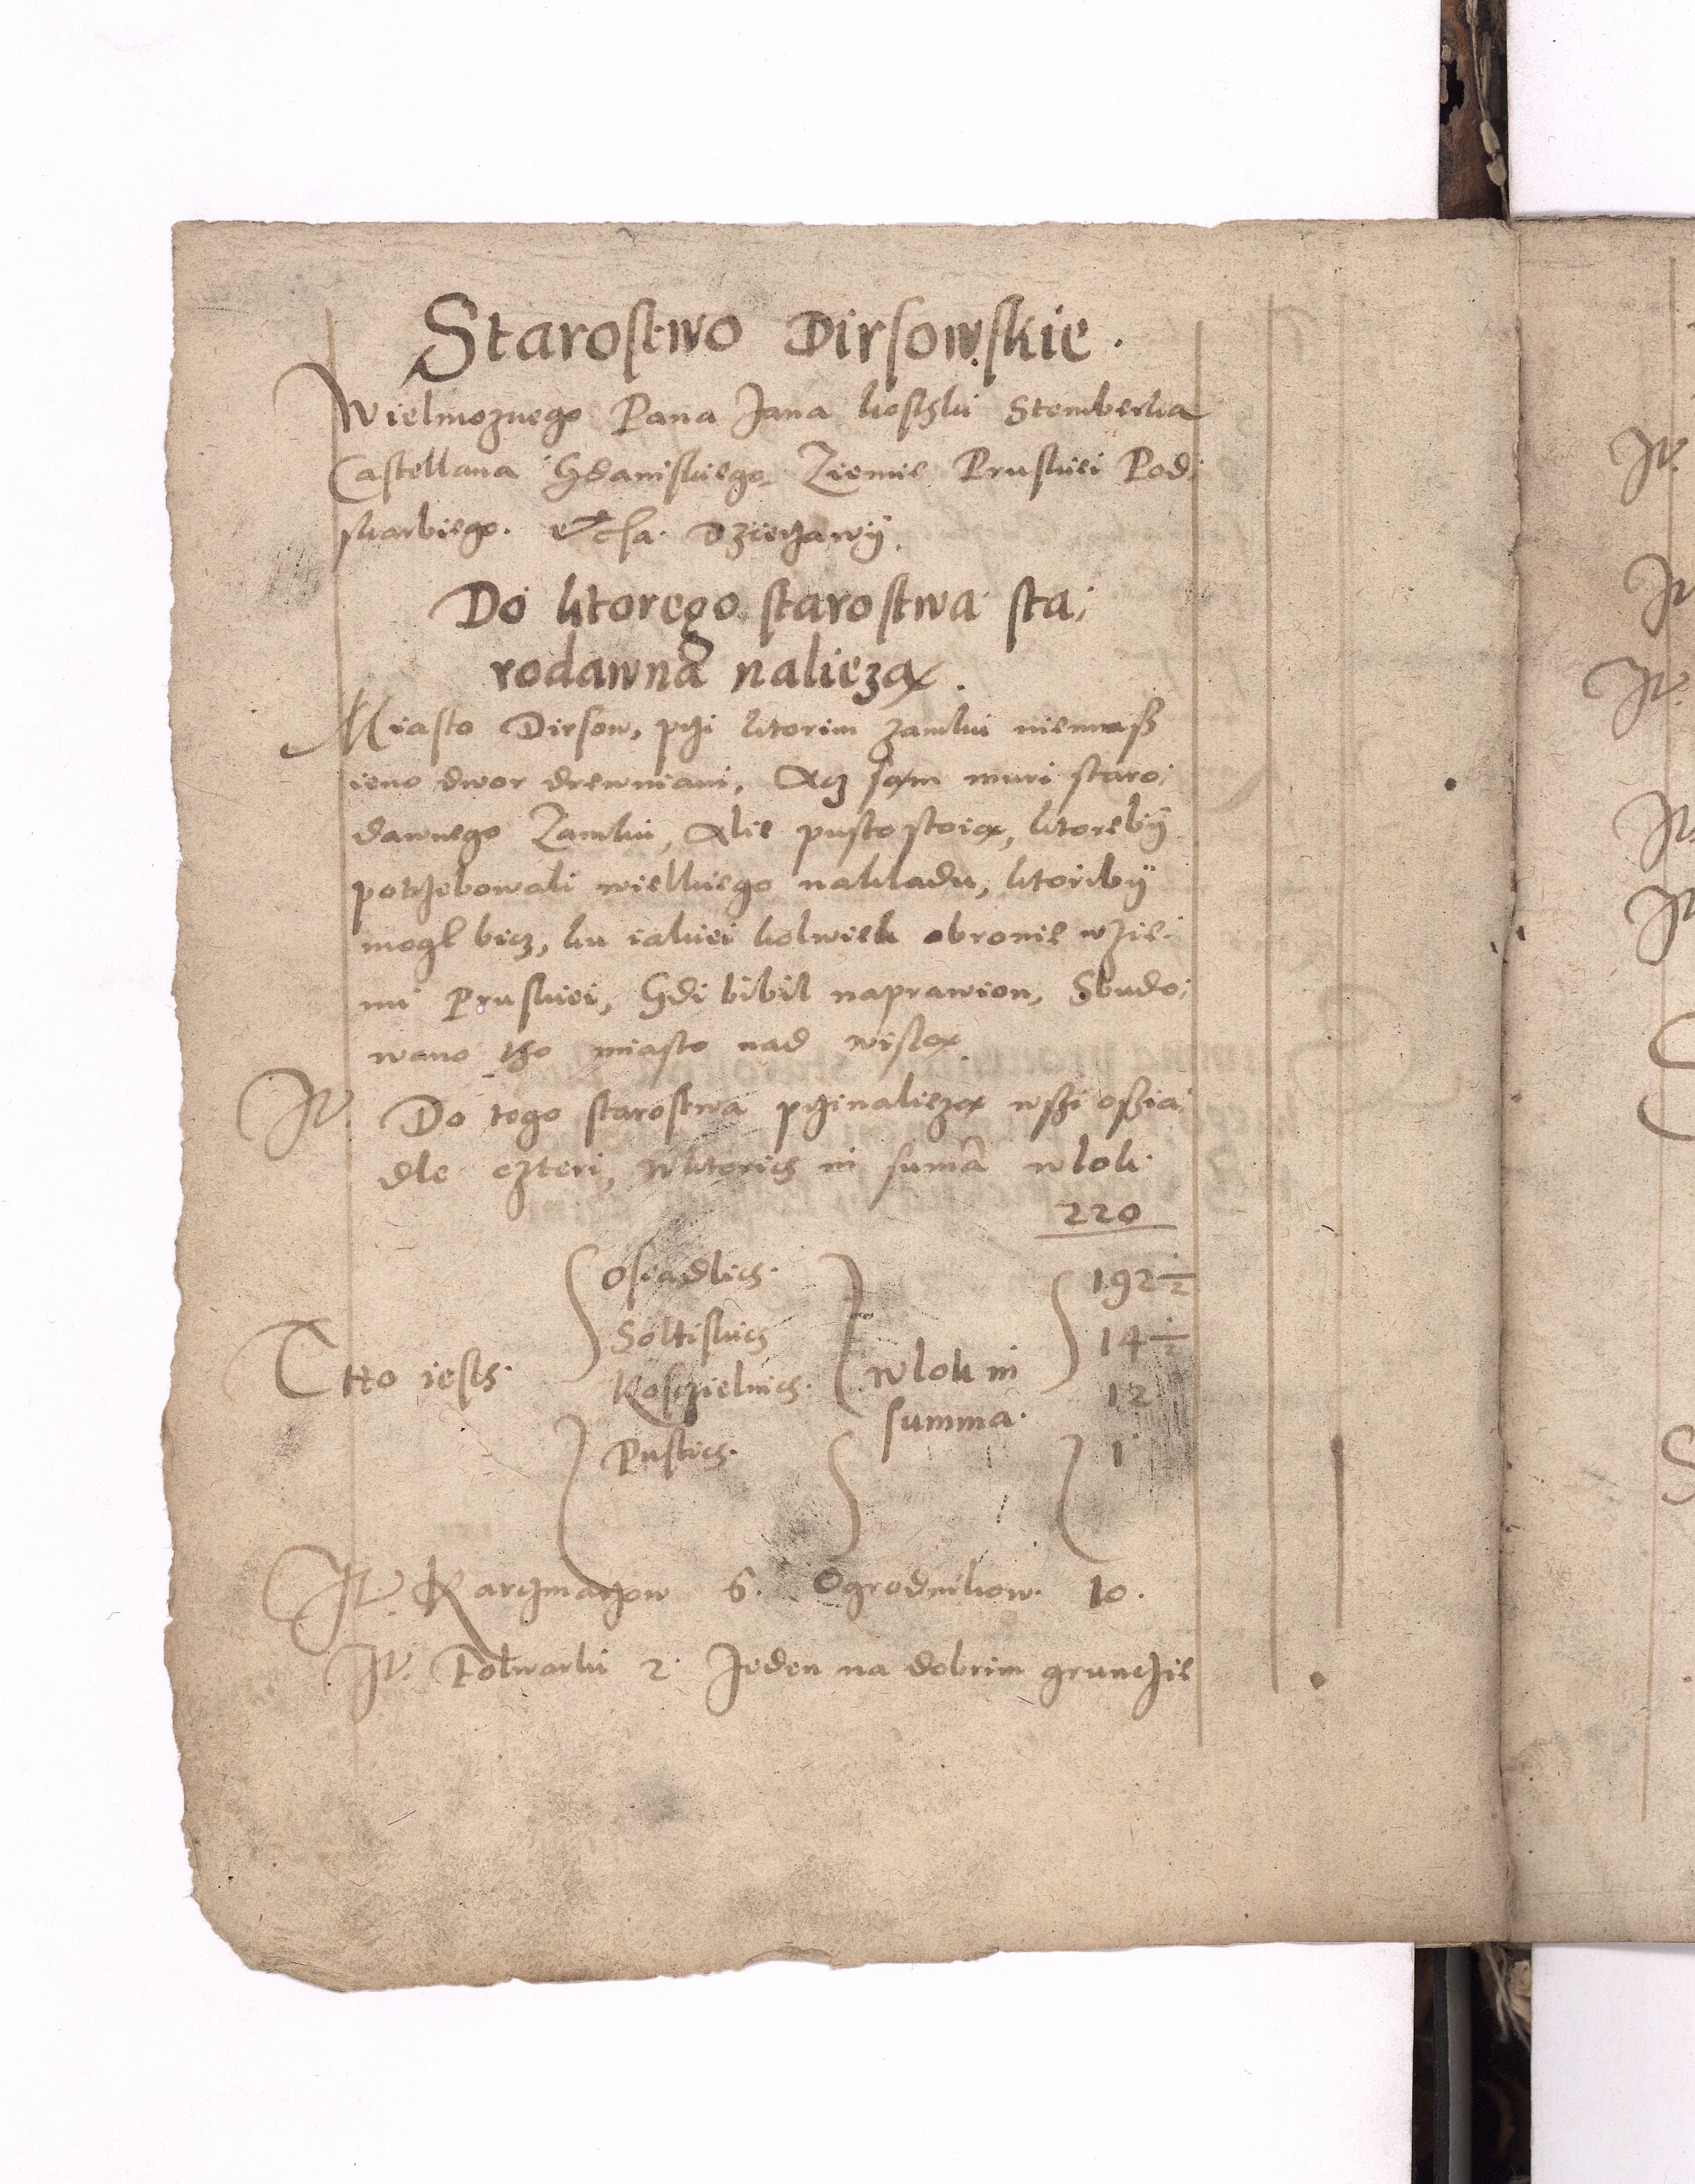 Starostwo Dirsowskie.
Wielmoznego Pana Jana kosthki Stemberka
Castellana Gdaniskiego Ziemie Pruskiei Pod:
skarbiego. etcha. Dzierzawÿ.
Do ktorego starostwa sta:
rodawna naliezą.
Miasto Dirsow, przi ktorim zamku niemasz
ieno dwor drewniani, Acz sąm muri staro:
dawnego Zamku, Alie pusto stoią, ktorebÿ
potrzebowali wielkiego nakladu, ktoribÿ
mogl bicz, ku iakiei kolwiek obronie wzie:
mi Pruskiei, Gdi bibil naprawion, Sbudo:
wano tho miasto nad wisłą
It. Do tego starostwa przinaliezą wszi ossia:
dle czteri, Wktorich in sumā wlok.
220
Osiadlich. 192 ½
Soltiskich 14 ½
Ctto iesth. Kosczielnich. wlok in 12
summa.
Pustich. 1
It. Karczmarzow 6. Ogrodnikow. 10.
It. Folwarki 2. Jeden na dobrim grunczie
It.
It
It.
It.
It